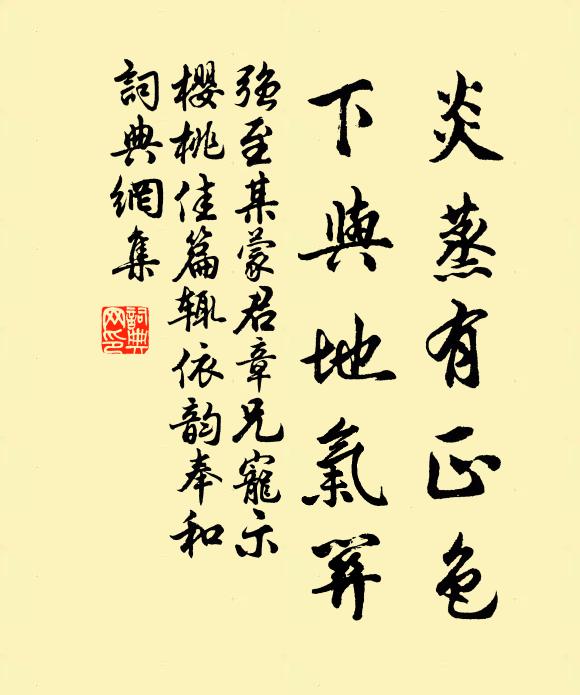 炎蒸有正色
下與地氣
強至某蒙君章兄寵示
櫻桃佳篇輒依韵奉和
詞典網集
詞典网印